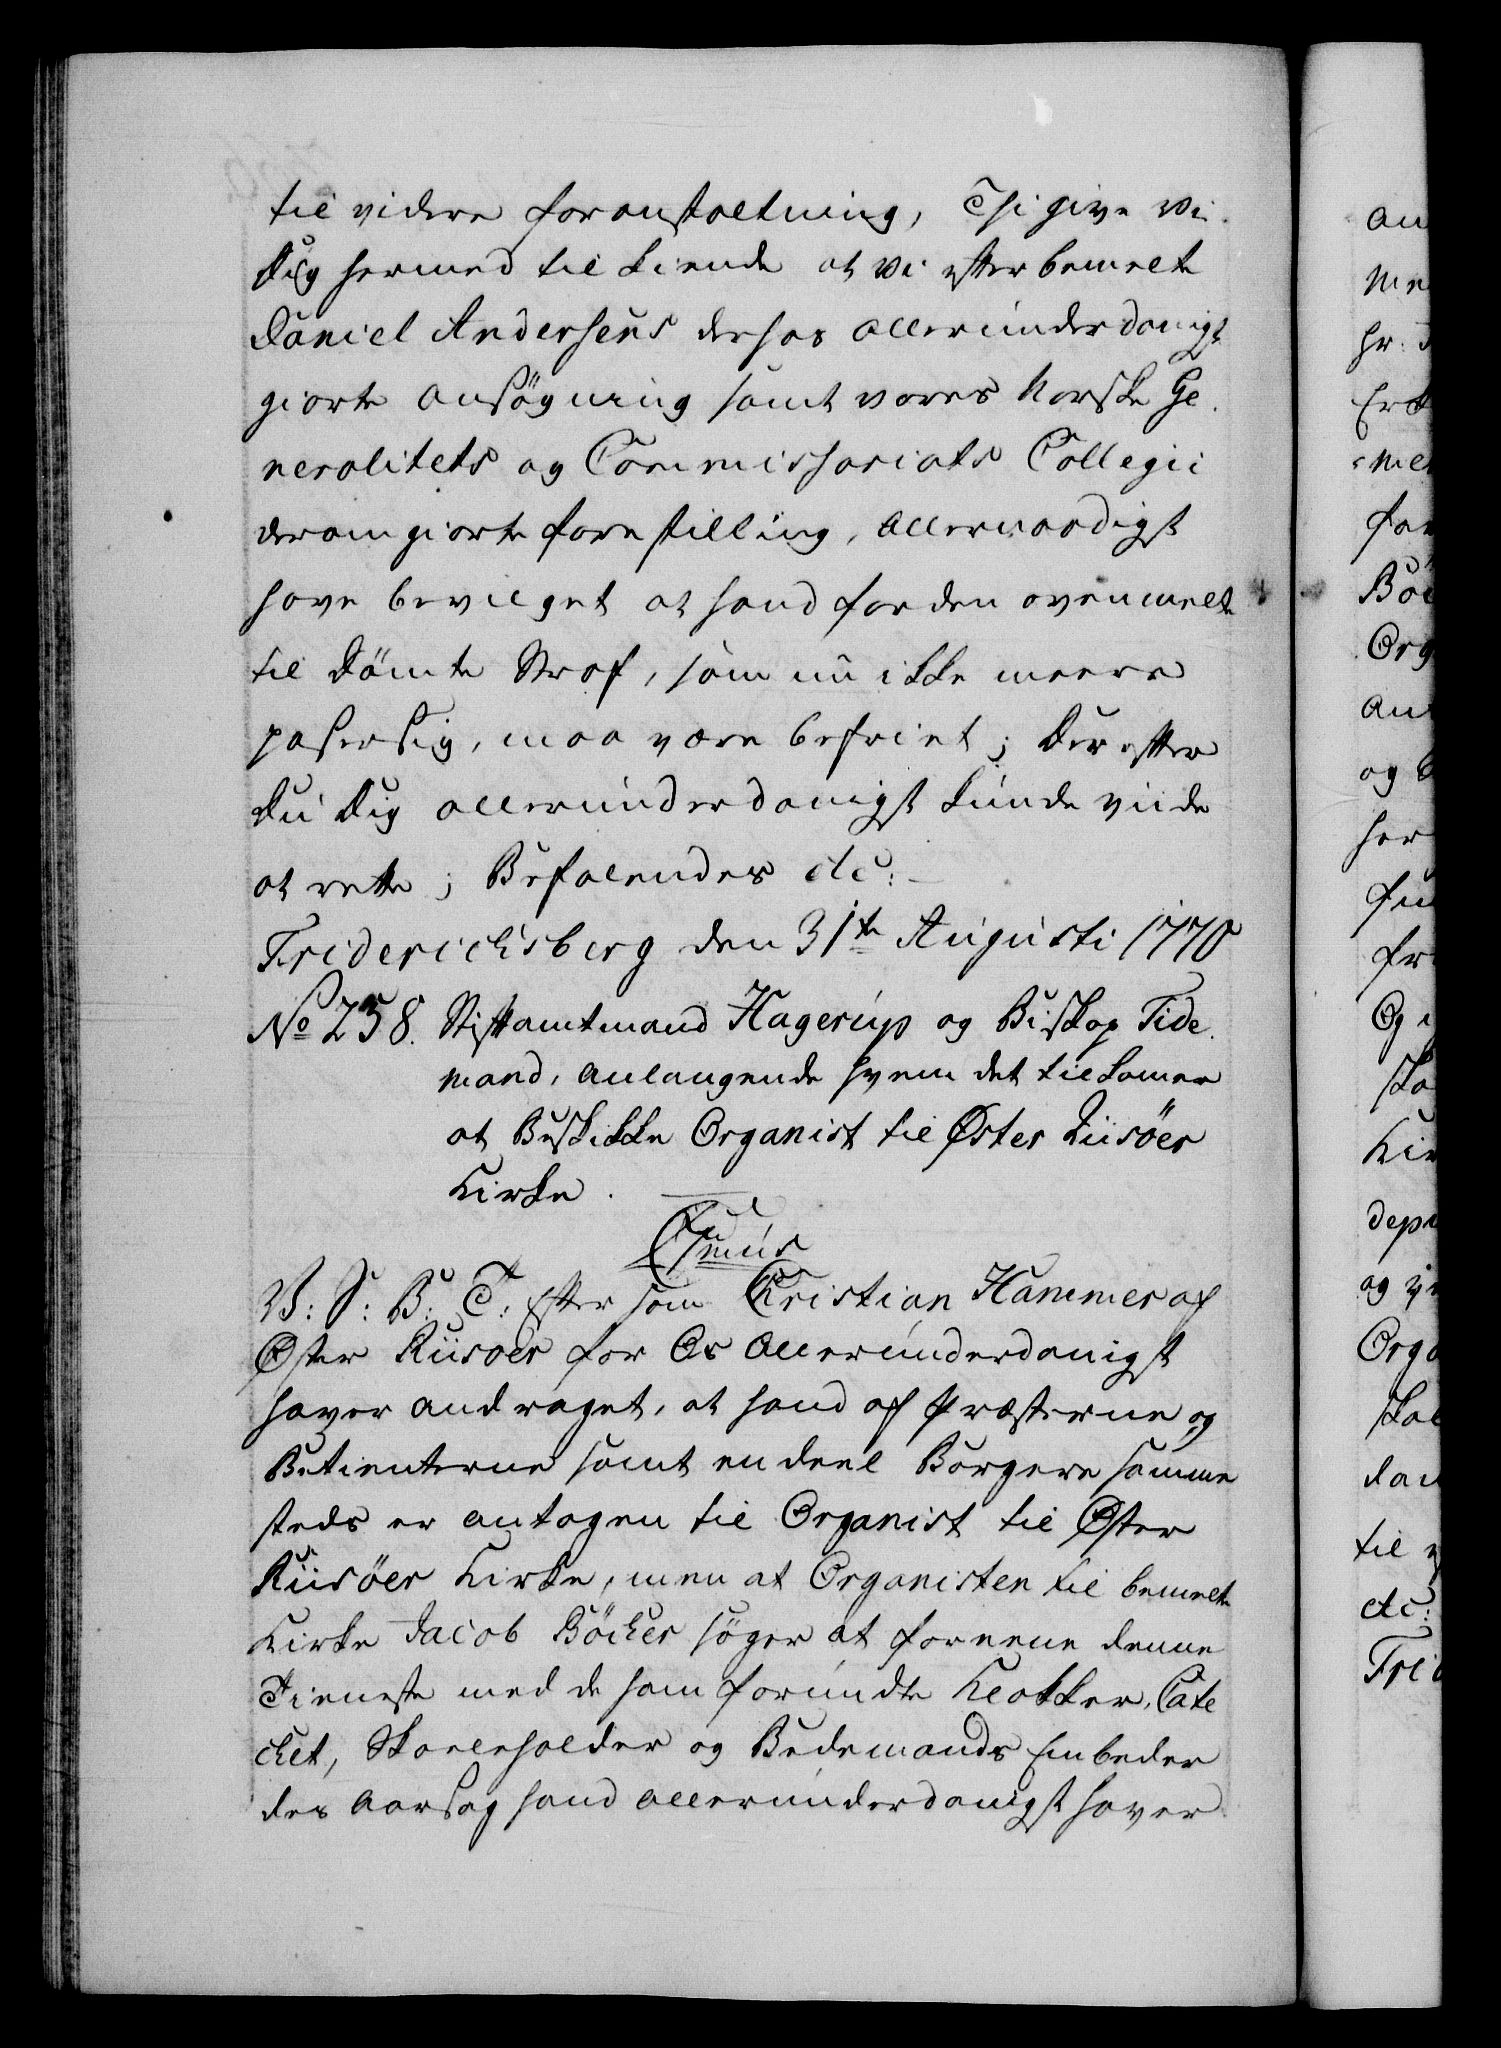 til videre foranstaltning, Thi give Vi
Dig hermed til kiende at Vi efter bemelte
Daniel Andersens derhos allerunderdanigst
giorte ansøgning samt vores Norske Ge
neralitets og Commissariats Collegii
derom giorte forestilling, allernaadigst
have bevilget at hand for den ovenmelte
til dømte Straf, som nu ikke meere
passer sig, maa være befriet; Der efter
du dig allerunderdanigst kunde viide
at rette; Befalendes etc:
Friderichsberg den 31te Augusti 1770
No 258. Stiftamtmand Hagerup og Biskop Tide
mand, anlangende hvem det tilkomer
at Beskikke Organist til Øster Riisøer
Kirke.
C7mus
V: S: B: T: Efter som Christian Hammer af
Øster Riisøer for Os allerunderdanigst
haver andraget, at hand af Præsterne og
Betienterne samt en deel Borgere samme
steds er antagen til Organist til Øster
Riisöer Kirke, men at Organisten til bemelte
Kirke Jacob Böcker søger at foreene denne
Tieneste med de ham forundte Klokker, Cate
chet, Skoleholder og Bedemands Embeder
des Aarsag hand allerunderdanigst haver
an
me
hr: 
for
Org
og
her
fr
Og
Ska
Kir
depu
til
etc:
Fri